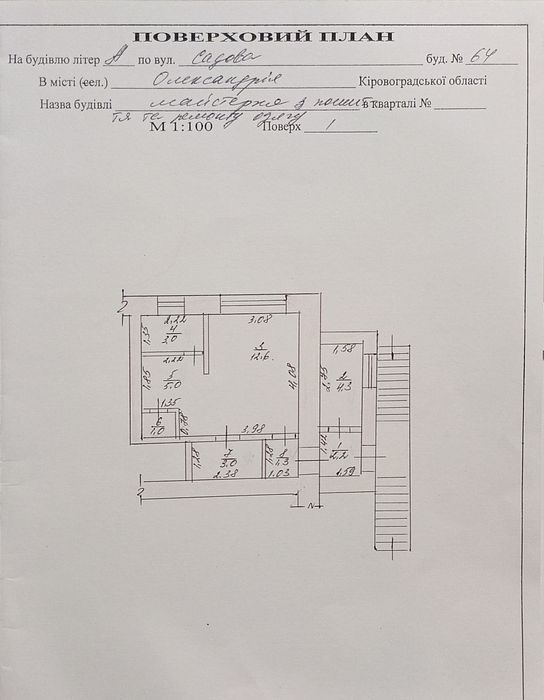 ПОВЕРХОВИЙ ПЛАН
На будівлю літер А по вул. Садова буд. № 64
В місті (сел.) Олександрія Кіровоградської області
Назва будівлі майстерня з пошит- в кварталі №
тя та ремонту одягу
М 1:100 Поверх 1
2,22 3,08
1,35 4 3,0
3 12,6
1,58
2,22
1,85 5 5,0
4,08
2,75 2 4,3
1,35
6 1,0 0,78
3,98
1,42 1 2,2
1,28 7 3,0
1,28 8 1,3
2.38 1.03 1,59
N